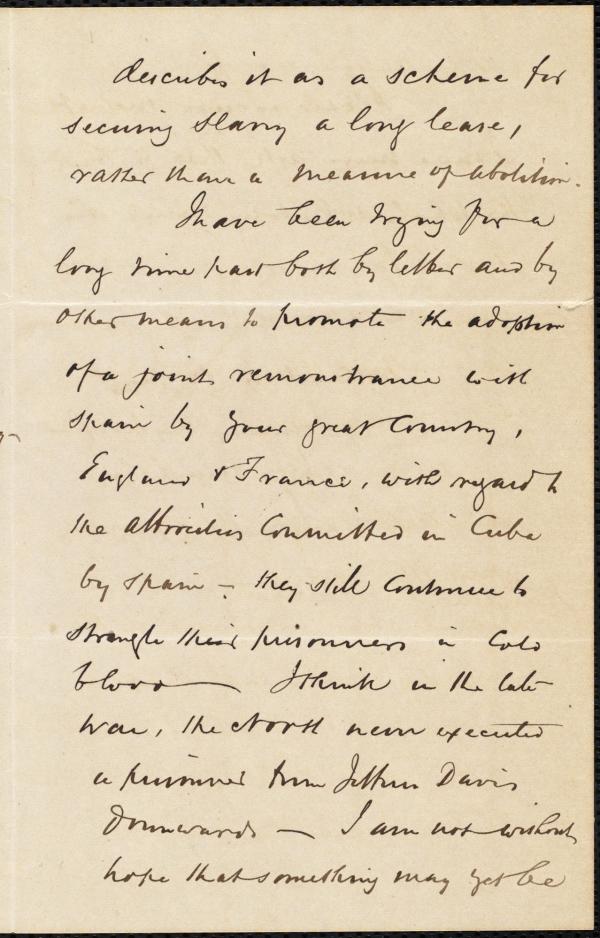 describes it as a scheme for
securing slavery a long lease,
rather than a measure of abolition.
I have been trying for a
long time past both by letter and by
other means to promote the adoption
of a joint remonstrance with
Spain by your great Country,
England & France, with regard to
the attrocities Committed in Cuba
by Spain – they still continue to
strangle their prisonners in cold
blood — I think in the late
war, the North never executed
a prisonner from Jefferson Davis
downwards — I am not without
hope that something may yet be